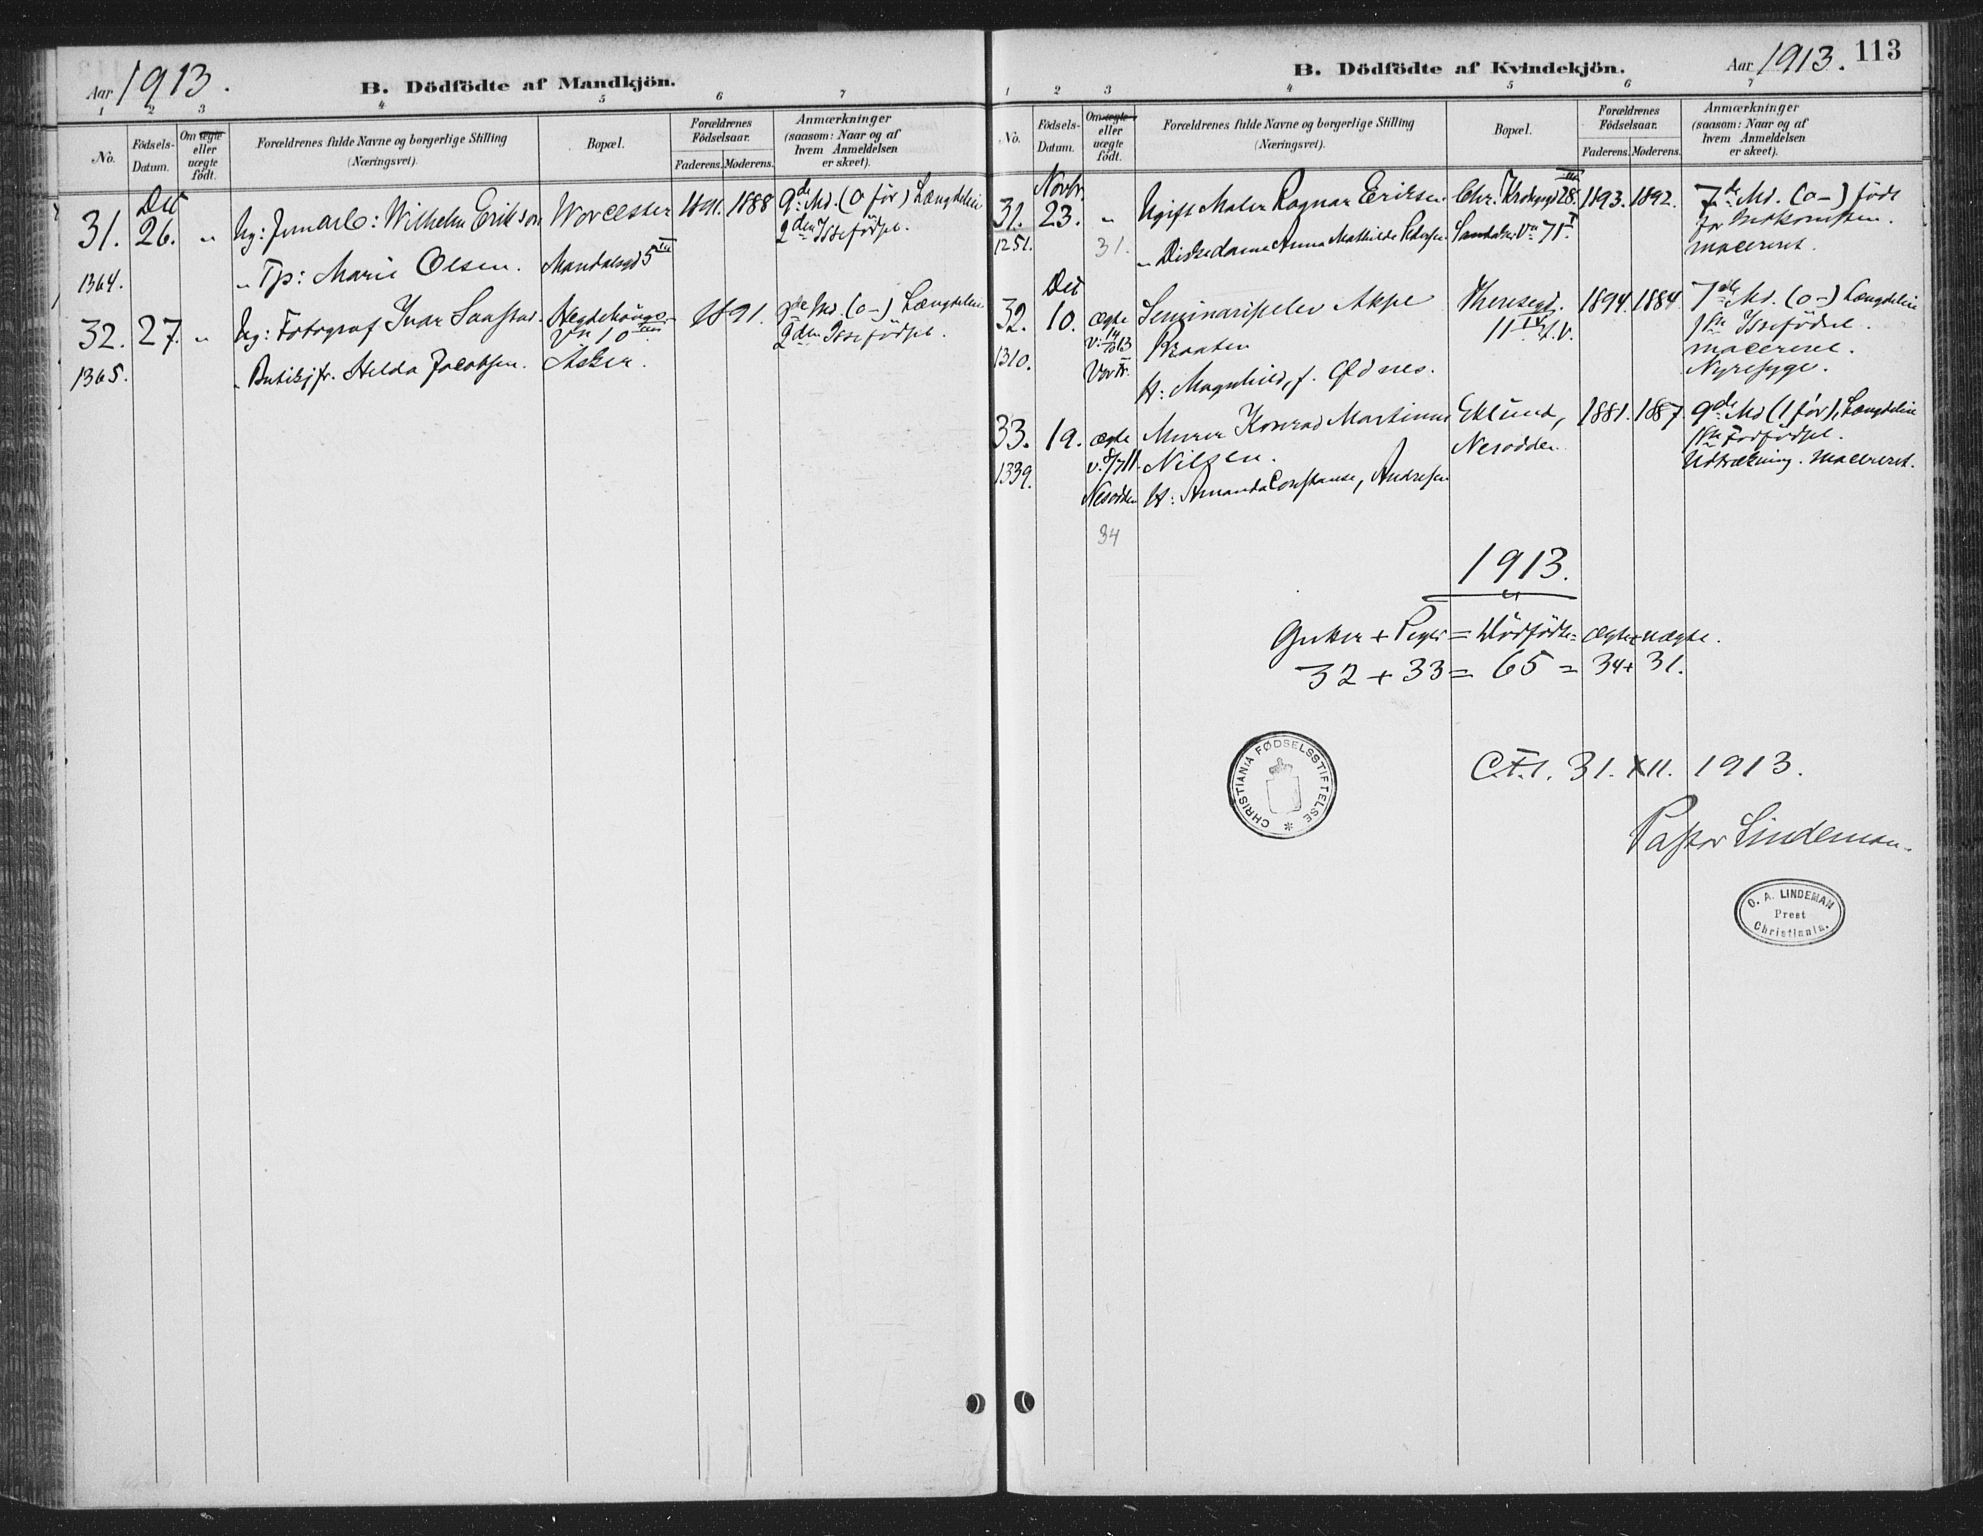 Aar 1913.
B. Dödfödte af Mandkjön.
1 2 3 4 5 6 7
No.
Födsels-
Datum.
Om ægte
eller
uægte
födt.
Forældrenes fulde Navne og borgerlige Stilling
(Næringsvei).
Bopæl.
Forældrenes
Födselsaar.
Faderens. Moderens.
Anmærkninger
(saasom: Naar og af
hvem Anmeldelsen
er skeet).
31.
1364.
Dec
26.
"
Ug: Jernarb: Wilhelm Erikson
" Tp: Marie Olsen.
Worcester
Mandalsgd 5 III
1891. 1888
9de Md. (0 før) Længdeleie
2den Issefödsl.
32.
1365.
27.
"
Ug: Fotograf Ivar Saastad.
" Butikjfr. Helda Jacobsen.
Hegdehaugs-
vn 10
Asker.
1891.
Md. (0-) Længdeleie
2den Issefödsl.
Aar 1913. 113
B. Dödfödte af Kvindekjön.
1 2 3 4 5 6 7
No.
Födsels-
Datum.
Om ægte
eller
uægte
födt.
Forældrenes fulde Navne og borgerlige Stilling
(Næringsvei).
Bopæl.
Forældrenes
Födselsaar.
Faderens. Moderens.
Anmærkninger
(saasom: Naar og af
hvem Anmeldelsen
er skeet).
31.
1251.
Novbr.
23.
"
31.
Ugift Maler Ragnar Eriksen.
" Diskedame Anna Mathilde Pedersen
Chr. Krohgsgd 28. III
Sandakervn 71 I
1893. 1892.
7de Md. (0-) Födt
før Indkomsten.
macereret.
32.
1310.
Dec
10.
ægte
v: 14/10 13
Vor Fr.
Seminarispelev
Braaten
H: Magnhild, f. Ødnes.
Theresegd.
11 IV
1894. 1884.
7de Md. (0-) Længdeleie
1ste Issefödsel.
macereret.
Nyresyge.
33.
1339.
19.
ægte
v: 8/7 11.
Nesodden
34
Murer Konrad Martinius
Nilsen.
H: Amanda Constanse, Andresen
Eklund,
Nesodden
1881. 1887
9de Md (1 før), Længdeleie
1ste Fodfödsl.
Udtrækning. macereret.
1913.
Gutter + Piger = Dödfödte = ægte + uægte.
32 + 33 = 65 = 34 + 31.
CHRISTIANIA FØDSELSSTIFTELSE *
C.F.s. 31. XII. 1913.
Pastor Lindeman.
O. A. LINDEMAN
Prest
Christiania.